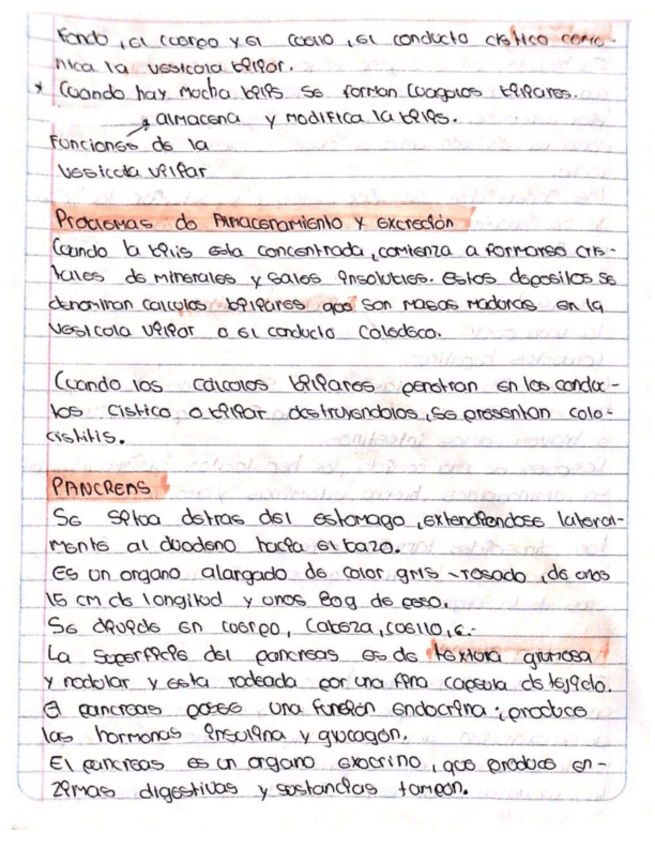 Fondo, el cuerpo y el cuello, el conducto cistico comu-
nica la vesicula biliar.
* Cuando hay mucha bilis se forman cuagulos biliares.
almacena y modifica la bilis.
Funciones de la
vesicula biliar
Problemas de Almacenamiento y excreción
Cuando la bilis esta concentrada, comienza a formarse cris-
tales de minerales y sales insolubles. Estos depositos se
denominan calculos biliares que son masas maduras en la
vesicula biliar o el conducto Coledoco.
Cuando los calculos biliares penetran en los conduc-
tos cistico o biliar destruyendolos, se presentan colo-
cistitis.
PANCREAS
Se situa detras del estomago, extendiendose lateral-
mente al duodeno hacia el bazo.
Es un organo alargado de color gris-rosado, de unos
15 cm de longitud y unos 80g de peso.
Se divide en cuerpo, cabeza, cuello,
La superficie del pancreas es de textura grumosa
y nodular y esta rodeada por una fina capsula de tejido.
El pancreas posee una función endocrina; produce
las hormonas insulina y glucagón.
El pancreas es un organo exocrino, que produce en-
zimas digestivas y sustancias tampon.